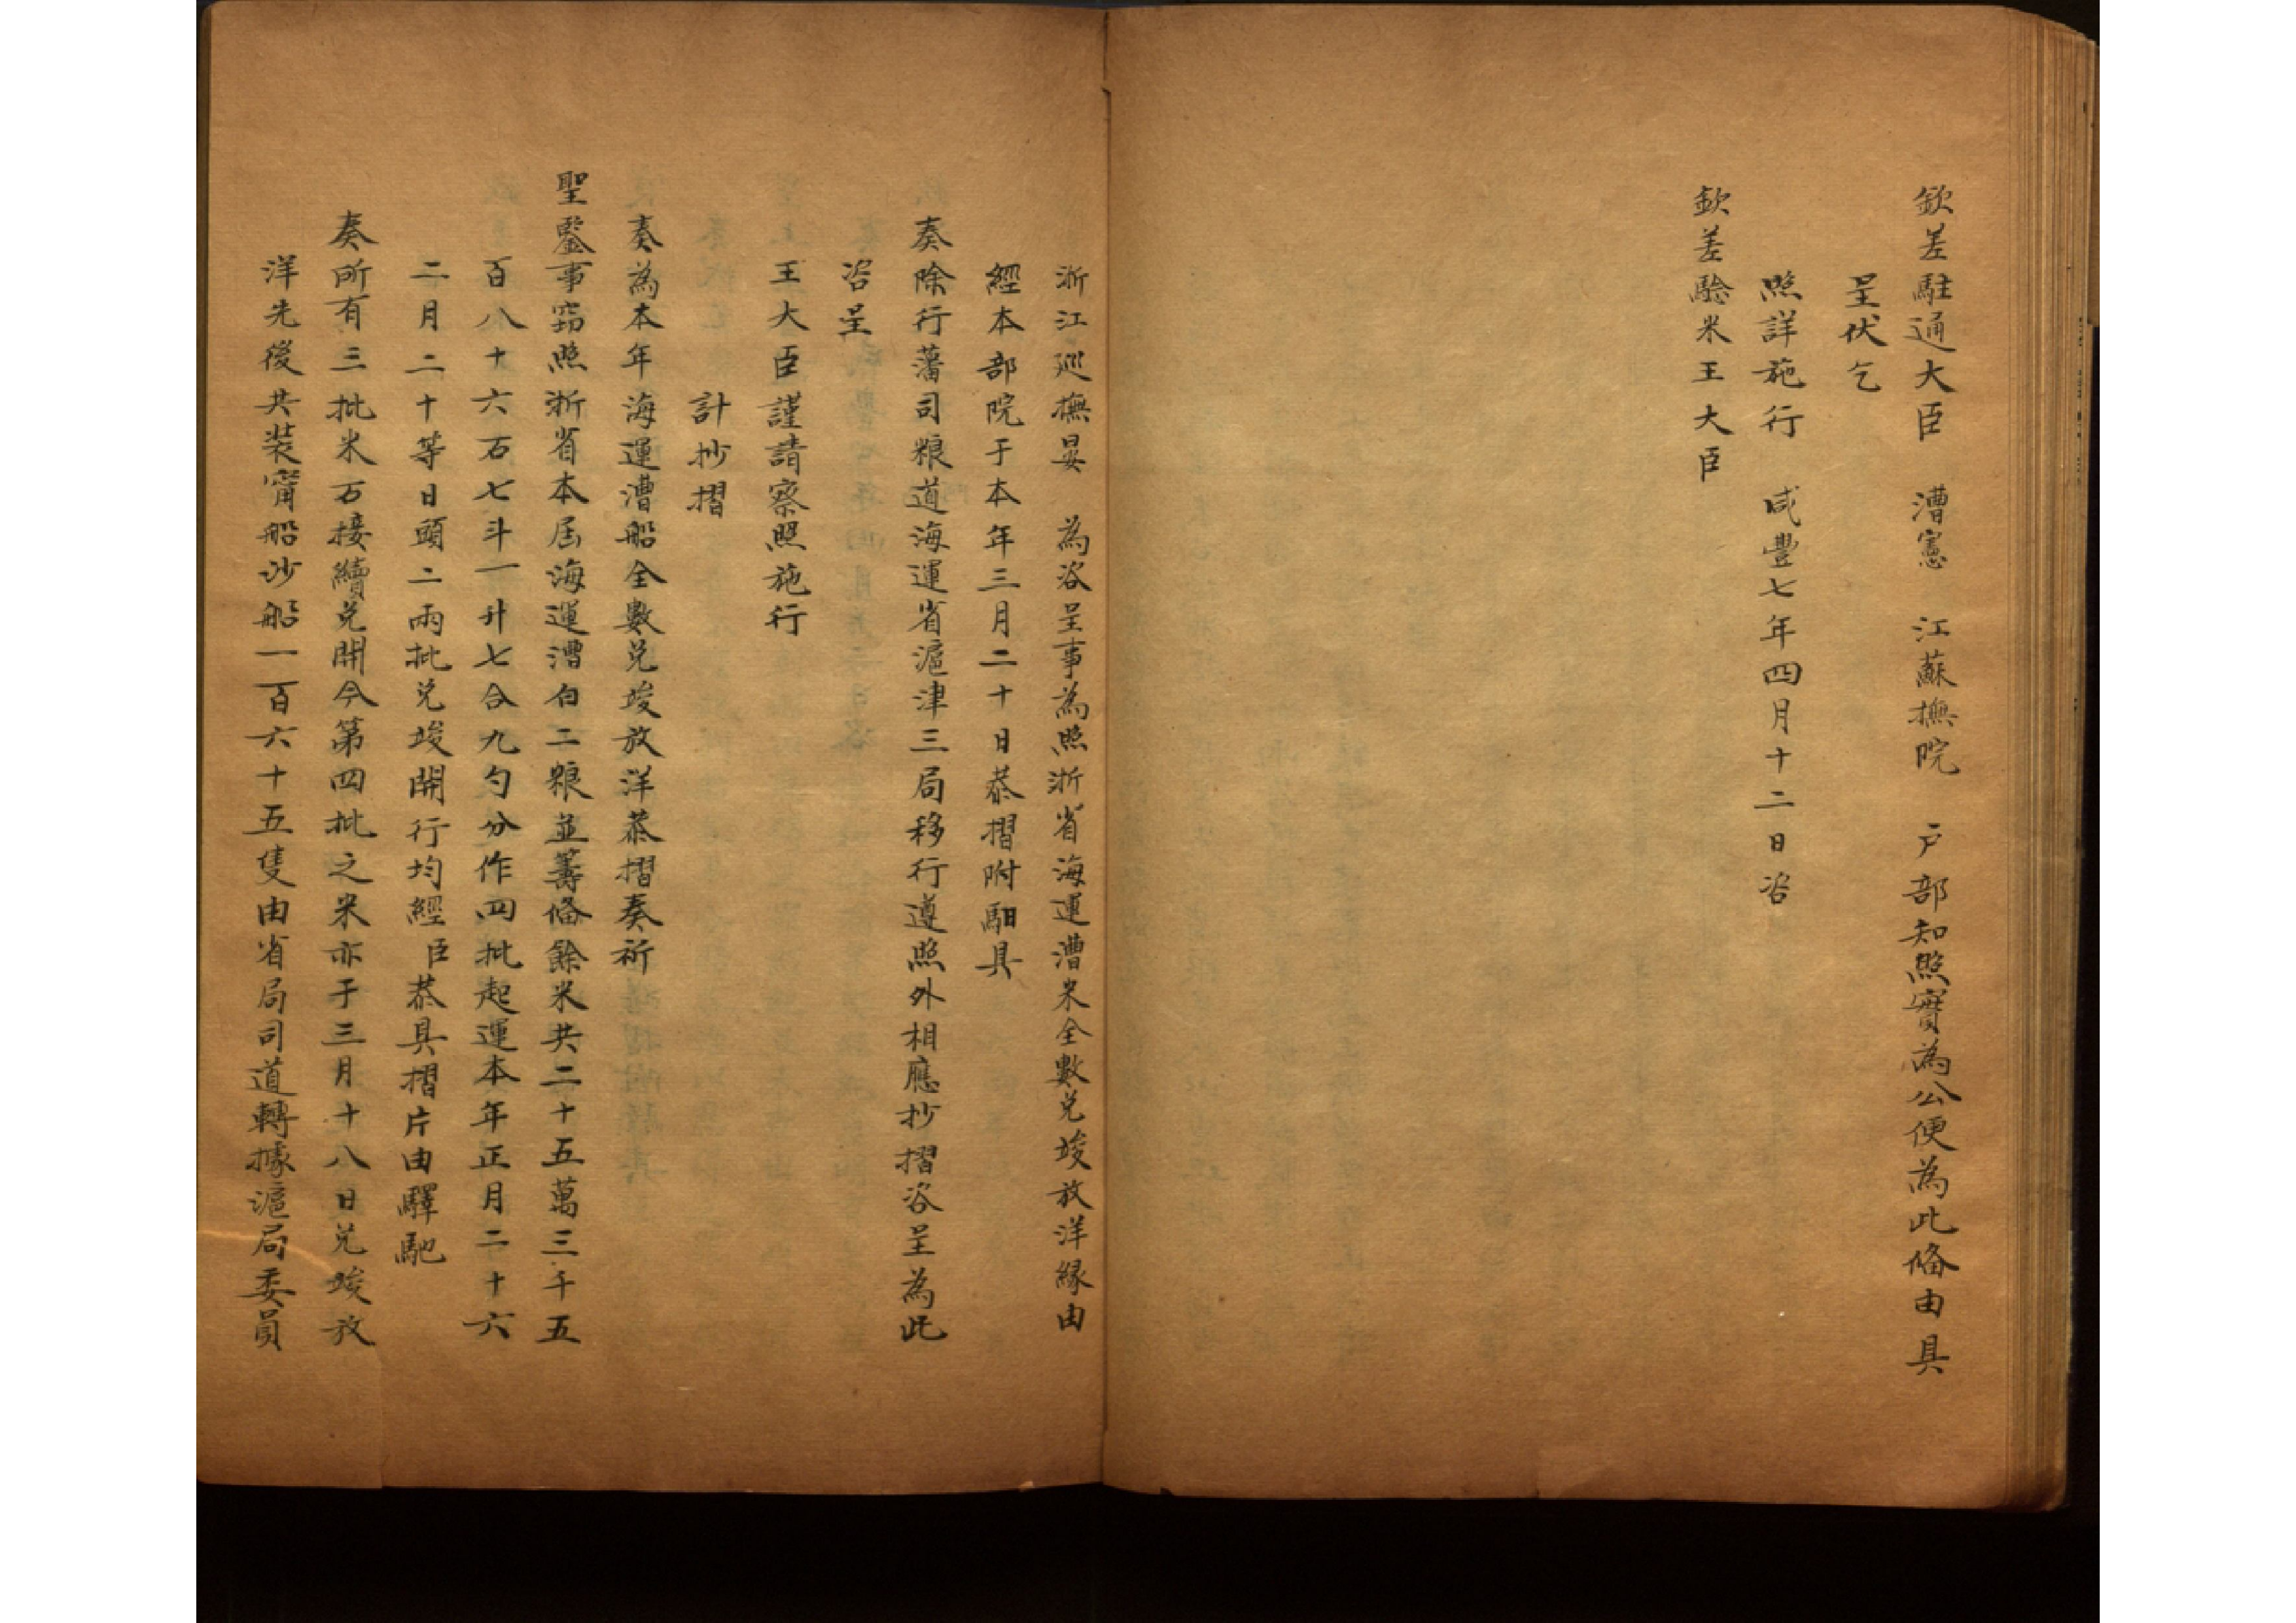 欽差駐通大臣　漕憲　江蘇撫院　戶部知照實為公便為此俻由具
呈伏乞
照詳施行　咸豐七年四月十二日咨
欽差驗米王大臣
浙江巡撫晏　為咨呈事為照浙省海運漕米全數兌竣放洋緣由
經本部院于本年三月二十日恭摺附馹具
奏除行藩司粮道海運省滬津三局移行遵照外相應抄摺咨呈為此
咨呈
王大臣謹請察照施行
計抄摺
奏為本年海運漕船全數兌竣放洋恭摺奏祈
聖鑒事竊照浙省本屆海運漕白二粮並籌俻餘米共二十五萬三千五
百八十六石七斗一升七合九勺分作四批起運本年正月二十六
二月二十等日頭二兩批兌竣開行均經臣恭具摺片由驛馳
奏所有三批米石接續兌開今第四批之米亦于三月十八日兌竣放
洋先後共装甯船沙船一百六十五隻由省局司道轉據滬局委員